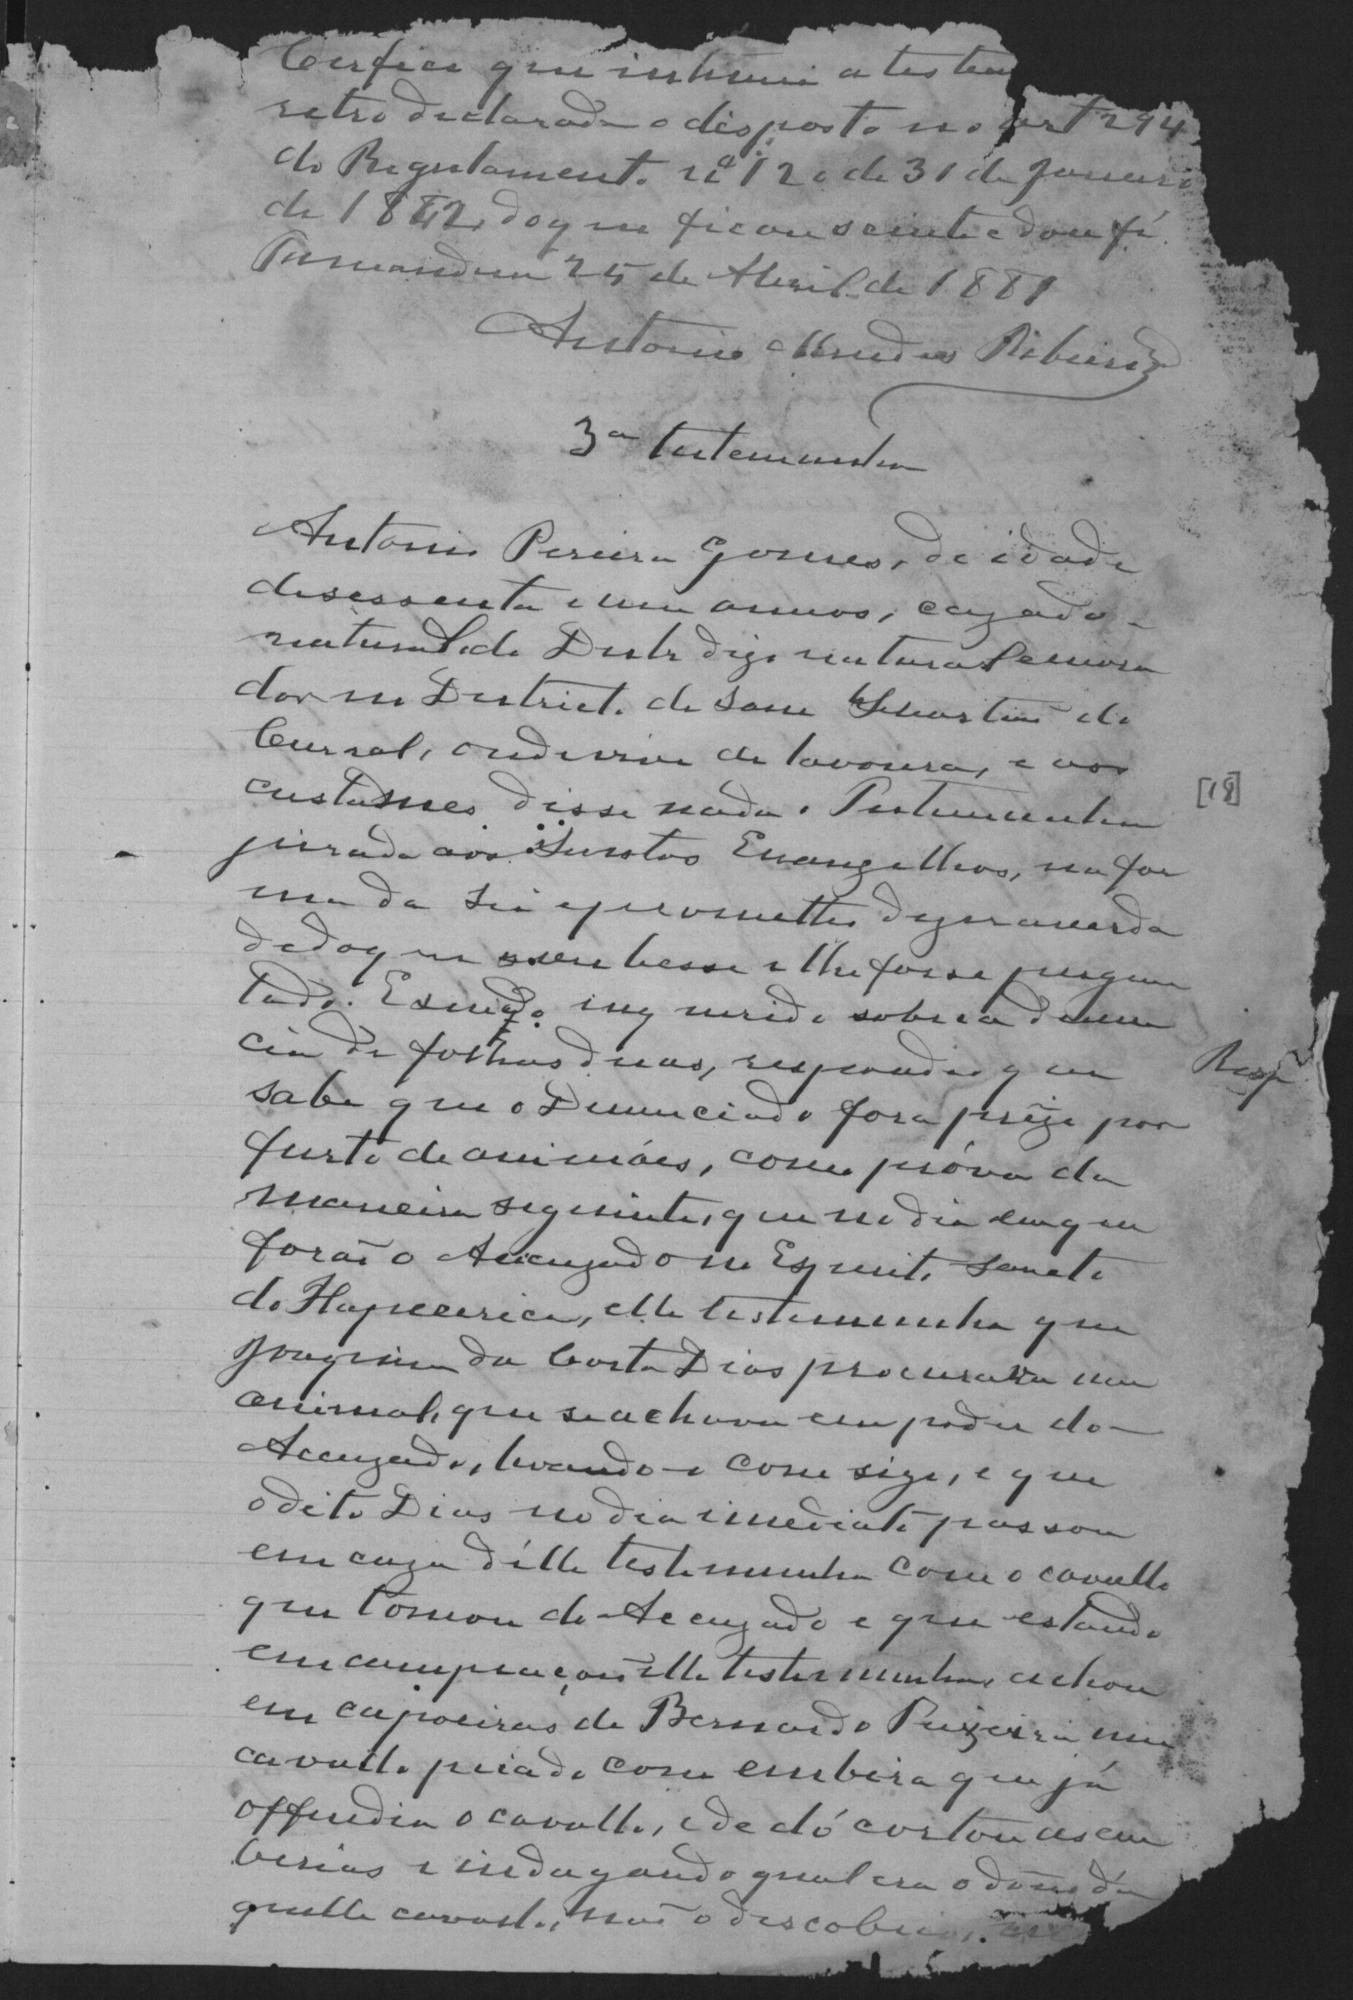 Certifico que intimei a testem
retro declarada o disposto no art 294
do Regulamento nº 120 de 31 de Janeiro
de 1842, do que ficou sciente e dou fé.
Tamanduá 25 de Abril de 1881
Antonio Mendes Ribeiro
3ª testemunha
Antonio Pereira Gomes, de idade
de sessenta e um annos, cazado
natural de Distr digo natural e mora
dor no Districto de Sam Sebastião do
Curral, onde vive de lavoura, e aos
custumes disse nada. Testemunha
[18]
jurada aos Santos Evangelhos, na for
ma da Lei e prometteo dizer a verda
de do que soubesse e lhe fosse pergun
tado. E sendo inquerido sobre a denun
cia de folhas duas, respondeo que
Resp
sabe que o Denunciado fora prezo por
furto de animáes, como próva da
maneira seguinte, que no dia em que
forão o Accuzado no Espirito Santo
do Itapecerica, elle testemunha que
Joaquim da Costa Dias procurava um
animal, que se achava em poder do
Accuzado, levando-o com sigo, e que
o dito Dias no dia immediato passou
em caza d'élle testemunha com o cavallo
que tomou do Accuzado e que estando
em campiação elle testemunha, achou
em capoeiras de Bernardo Teixeira um
cavallo peiado com embira que já
offendia o cavallo, e de dó cortou as em
birias e indagando qual era o dono d'a
quelle cavallo, não o descobrio,